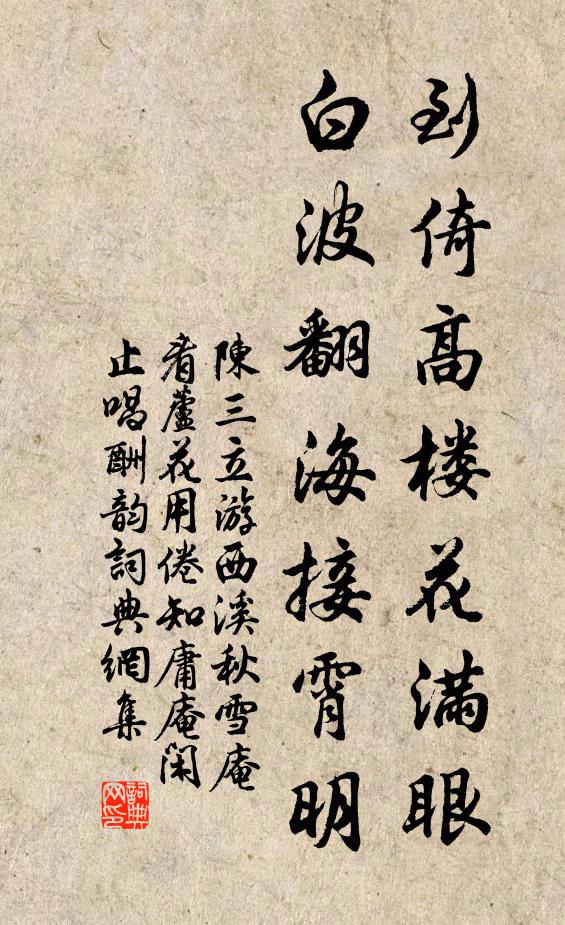 到倚高楼花满眼
白波翻海接霄明
陳三立游西溪秋雪庵
看蘆花用倦知庸庵闲
止唱酬韵詞典網集
詞典
网印